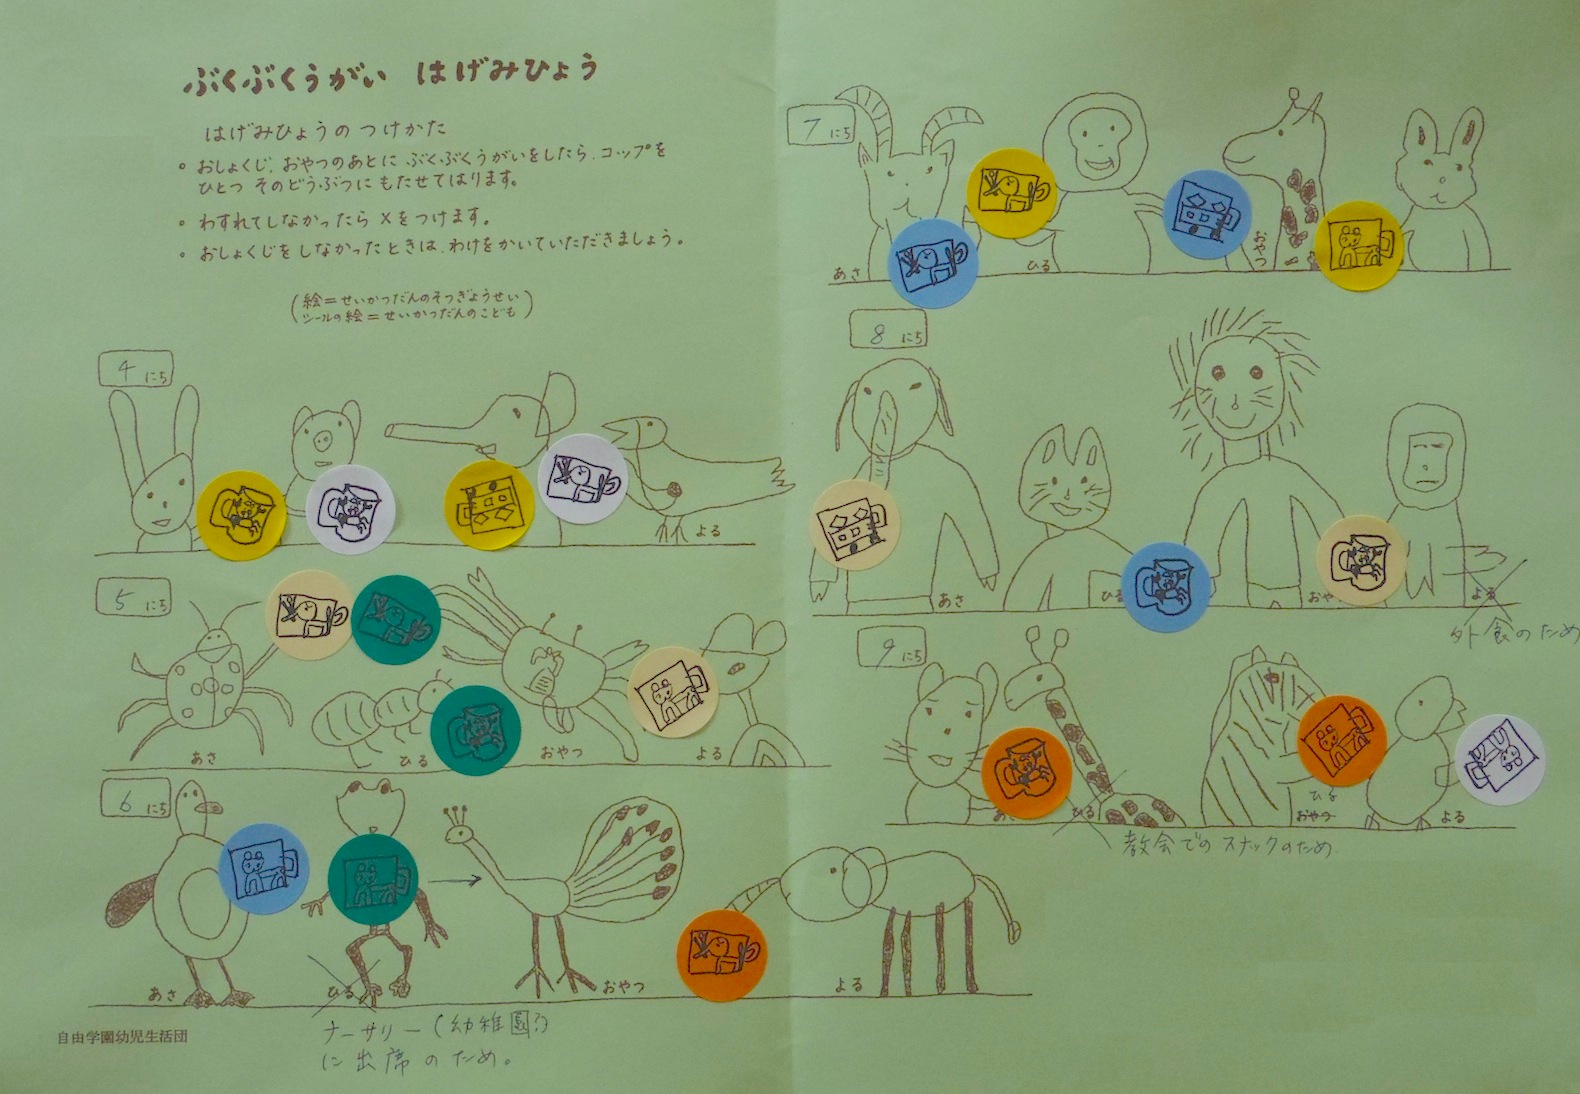 ぶくぶくうがい はげみひょう
はげみひょうの つけかた
。おしょくじ、おやつのあとに ぶくぶくうがいをしたら、コップを
ひとつ そのどうぶつに もたせてはります。
。わすれてしなかったら ×をつけます。
。おしょくじを しなかったときは、わけをかいていただきましょう。
(絵=せいかつだんのそつぎょうせい
シールの絵=せいかつだんのこども)
4にち
よる
5にち
あさ ひる おやつ よる
6にち
あさ ひる おやつ よる
ナーサリー(幼稚園)
に出席のため。
自由学園幼児生活団
7にち
あさ ひる おやつ
8にち
あさ ひる おやつ よる
外食のため
9にち
あさ ひる ひる おやつ よる
教会でのスナックのため.